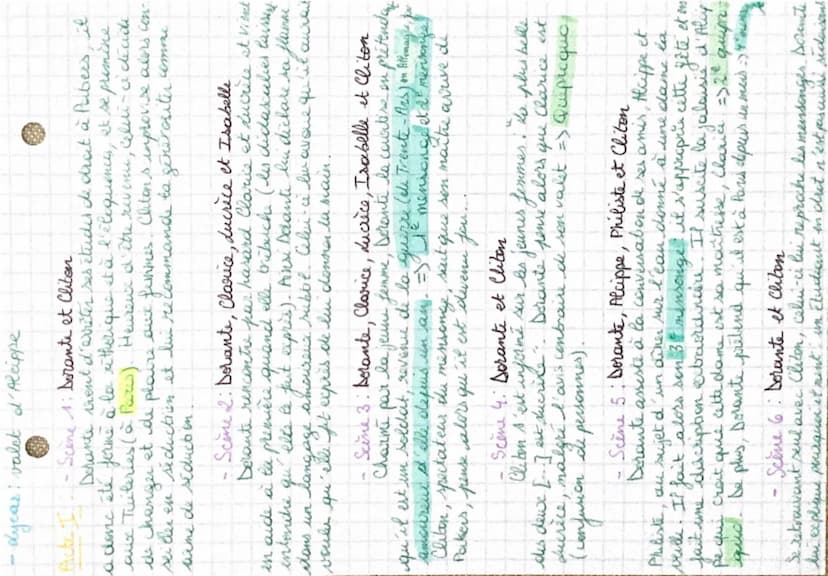 - Lycas : valet d'Alcippe
Acte I
- Scène 1 : Dorante et Cliton
Dorante vient d'arrêter ses études de droit à Poitiers, il
a donc été formé à la rhétorique et à l'éloquence, et se promène
aux Tuileries (à Paris). Heureux d'être revenu, celui-ci décide
de changer et de plaire aux femmes. Cliton s'improvise alors con-
seiller en séduction et lui recommande la générosité comme
arme de séduction.
- Scène 2 : Dorante, Clarice, Lucrèce et Isabelle
Dorante rencontre par hasard Clarice et Lucrèce et vient
en aide à la première quand elle trébuche (les didascalies
qu'elle le fait exprès). Ainsi Dorante lui déclare sa flamme
dans un langage amoureux subtil. Celle-ci lui avoue qu'il aurait
voulu qu'elle fit exprès de lui donner la main.
- Scène 3 : Dorante, Clarice, Lucrèce, Isabelle et Cliton
Charmé par la jeune femme, Dorante la courtise en prétendant
qu'il est un soldat, revenu de la guerre (de Trente-Ans) en Allemagne
amoureux d'elle depuis un an => 1e mensonge et 2e mensonge
Cliton, spectateur du mensonge, sait que son maître arrive de
Poitiers, pense alors qu'il est devenu fou...
- Scène 4 : Dorante et Cliton
Cliton s'est informé sur les jeunes femmes : "la plus belle
des deux [...] est Lucrèce". Dorante pense alors que Clarice est
Lucrèce, malgré l'avis contraire de son valet => Quiproquo
(confusion de personnes).
- Scène 5 : Dorante, Alcippe, Philiste et Cliton
Dorante assiste à la conversation de ses amis, Alcippe et
Philiste, au sujet d'un dîner sur l'eau, donné à une dame la
veille. Il fait alors son 3e mensonge : il s'approprie cette fête et en
fait une description extraordinaire. Il suscite la jalousie d'Alcippe
qui croit que cette dame est sa maîtresse, Clarice => 2e quipro-
quo. De plus, Dorante prétend qu'il est à Paris depuis un mois =>
- Scène 6 : Dorante et Cliton
Se retrouvant seul avec Cliton, celui-ci lui reproche les mensonges. Dorante
lui explique pourquoi il ment : un étudiant en droit n'est pas assez séduisant